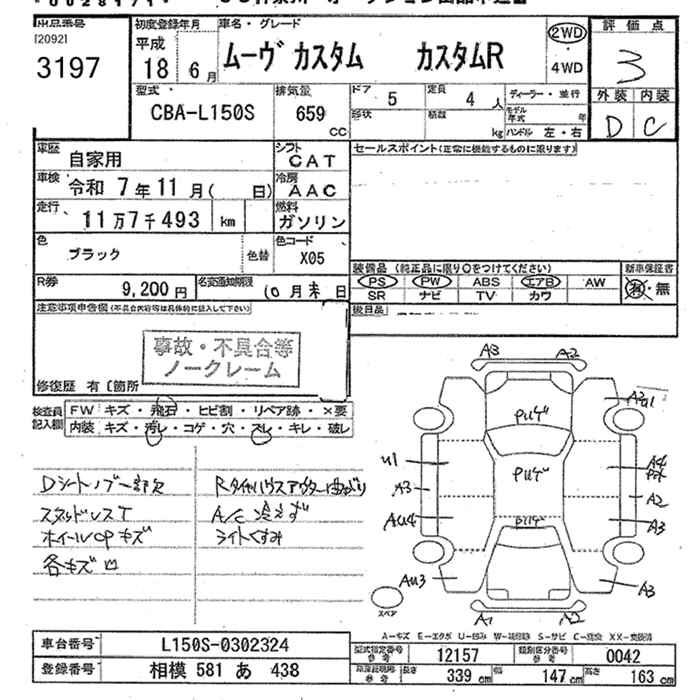 出品番号 初度登録年月 車名・グレード 評価点
[2092] 平成 ムーヴカスタム カスタムR 2WD 3
3197 18 年 6 月 4WD
型式 排気量 ドア 定員 ディーラー・並行 外装 内装
CBA-L150S 659 CC 5 4 人 D C
形状 積載 kg モデル年式 年
ハンドル 左・右
車歴 自家用 シフト CAT セールスポイント(正常に機能するものに限ります)
車検 令和 7 年 11 月( 日) 冷房 AAC
走行 11万7千493 km 燃料 ガソリン
色 ブラック 色替 色コード X05
装備品 (純正品に限り○をつけてください) 新車保証書
R券 9,200 円 名変通知期限 10 月 末 日 PS PW ABS エアB AW 有・無
SR ナビ TV カワ
注意事項申告欄(不具合内容等は具体的に記入して下さい) 後日品
事故・不具合等
ノークレーム
修復歴 有 [箇所
検査員記入欄 FW キズ・飛石・ヒビ割・リペア跡・×要
内装 キズ・汚レ・コゲ・穴・スレ・キレ・破レ
Dシートノブ一部欠 Rタイヤハウスアウター曲がり
スタッドレスT A/C冷えず
ホイールCPキズ ライトくすみ
各キズ凹
A3 A2
PUゲ
U1 PUゲ A4
A3 A2
AU4 PUゲ A3
AU3 A3
スペア A1 A2
A-キズ E-エクボ U-凹み S-サビ
車台番号 L150S-0302324 型式指定番号 参考 12157 類別区分番号 参考 0042
登録番号 相模 581 あ 438 参考 長さ 339 cm 幅 147 cm 高さ 163 cm